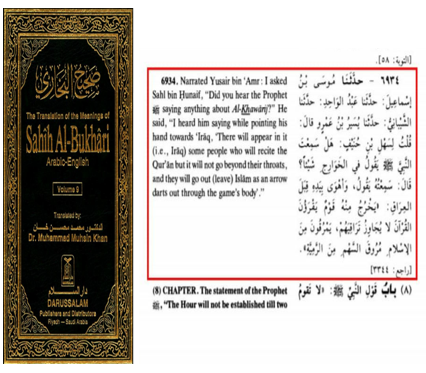 صحيح البخاري
The Translation of the Meanings of
Sahih Al-Bukhâri
Arabic-English
Volume 9
Translated by:
الدكتور محمد محسن خان
Dr. Muhammad Muhsin Khan
دار السلام
DARUSSALAM
Publishers and Distributors
Riyadh - Saudi Arabia
6934. Narrated Yusair bin 'Amr: I asked
Sahl bin Hunaif, "Did you hear the Prophet
ﷺ saying anything about Al-Khawârij?" He
said, "I heard him saying while pointing his
hand towards 'Irâq, 'There will appear in it
(i.e., Irâq) some people who will recite the
Qur'ân but it will not go beyond their throats,
and they will go out (leave) Islâm as an arrow
darts out through the game's body'."
(8) CHAPTER. The statement of the Prophet
ﷺ, "The Hour will not be established till two
[التوبة: ٥٨].
٦٩٣٤ - حدَّثَنَا مُوسَى بْنُ
إِسْمَاعِيلَ: حدَّثَنَا عَبْدُ الوَاحِدِ: حدَّثَنَا
الشَّيْبَانِيُّ: حدَّثَنَا يُسَيْرُ بْنُ عَمْرٍو قَالَ:
قُلْتُ لِسَهْلِ بْنِ حُنَيْفٍ: هَلْ سَمِعْتَ
النَّبِيَّ ﷺ يَقُولُ في الخَوَارِجِ شَيْئًا؟
قَالَ: سَمِعْتُهُ يَقُولُ، وَأَهْوَى بِيَدِهِ قِبَلَ
العِرَاقِ: «يَخْرُجُ مِنْهُ قَوْمٌ يَقْرَؤُنَ
القُرْآنَ لَا يُجَاوِزُ تَرَاقِيَهُمْ، يَمْرُقُونَ مِنَ
الإِسْلَامِ مُرُوقَ السَّهْمِ مِنَ الرَّمِيَّةِ».
[راجع: ٣٣٤٤]
(٨) بابُ قَوْلِ النَّبِيِّ ﷺ: «لَا تَقُومُ